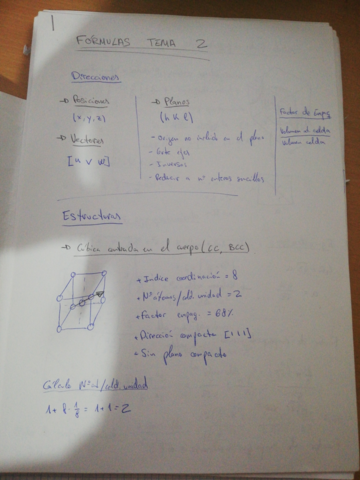 1
FÓRMULAS TEMA 2
Direcciones
→ Posiciones
(x, y, z)
→ Vectores
[u v w]
→ Planos
(h k l)
- Origen no incluido en el plano
- Corte ejes
- Inversos
- Reducir a nº enteros sencillos
Factor de empaq.
Volumen celda
Estructuras
→ Cúbica centrada en el cuerpo (CC, BCC)
• Indice coordinación = 8
• Nº átomos/cld. unidad = 2
• Factor empaq. = 68%
• Dirección compacta [111]
• Sin plano compacto
Cálculo Nº at/cld. unidad
1 + 8 · 1/8 = 1 + 1 = 2